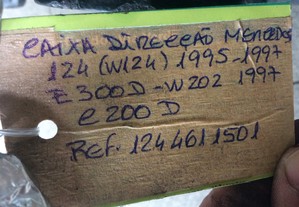 CAIXA DIRECÇÃO MERCEDES
124 (W124) 1995-1997
E300D-W202 1997
C200D
REF. 1244611501